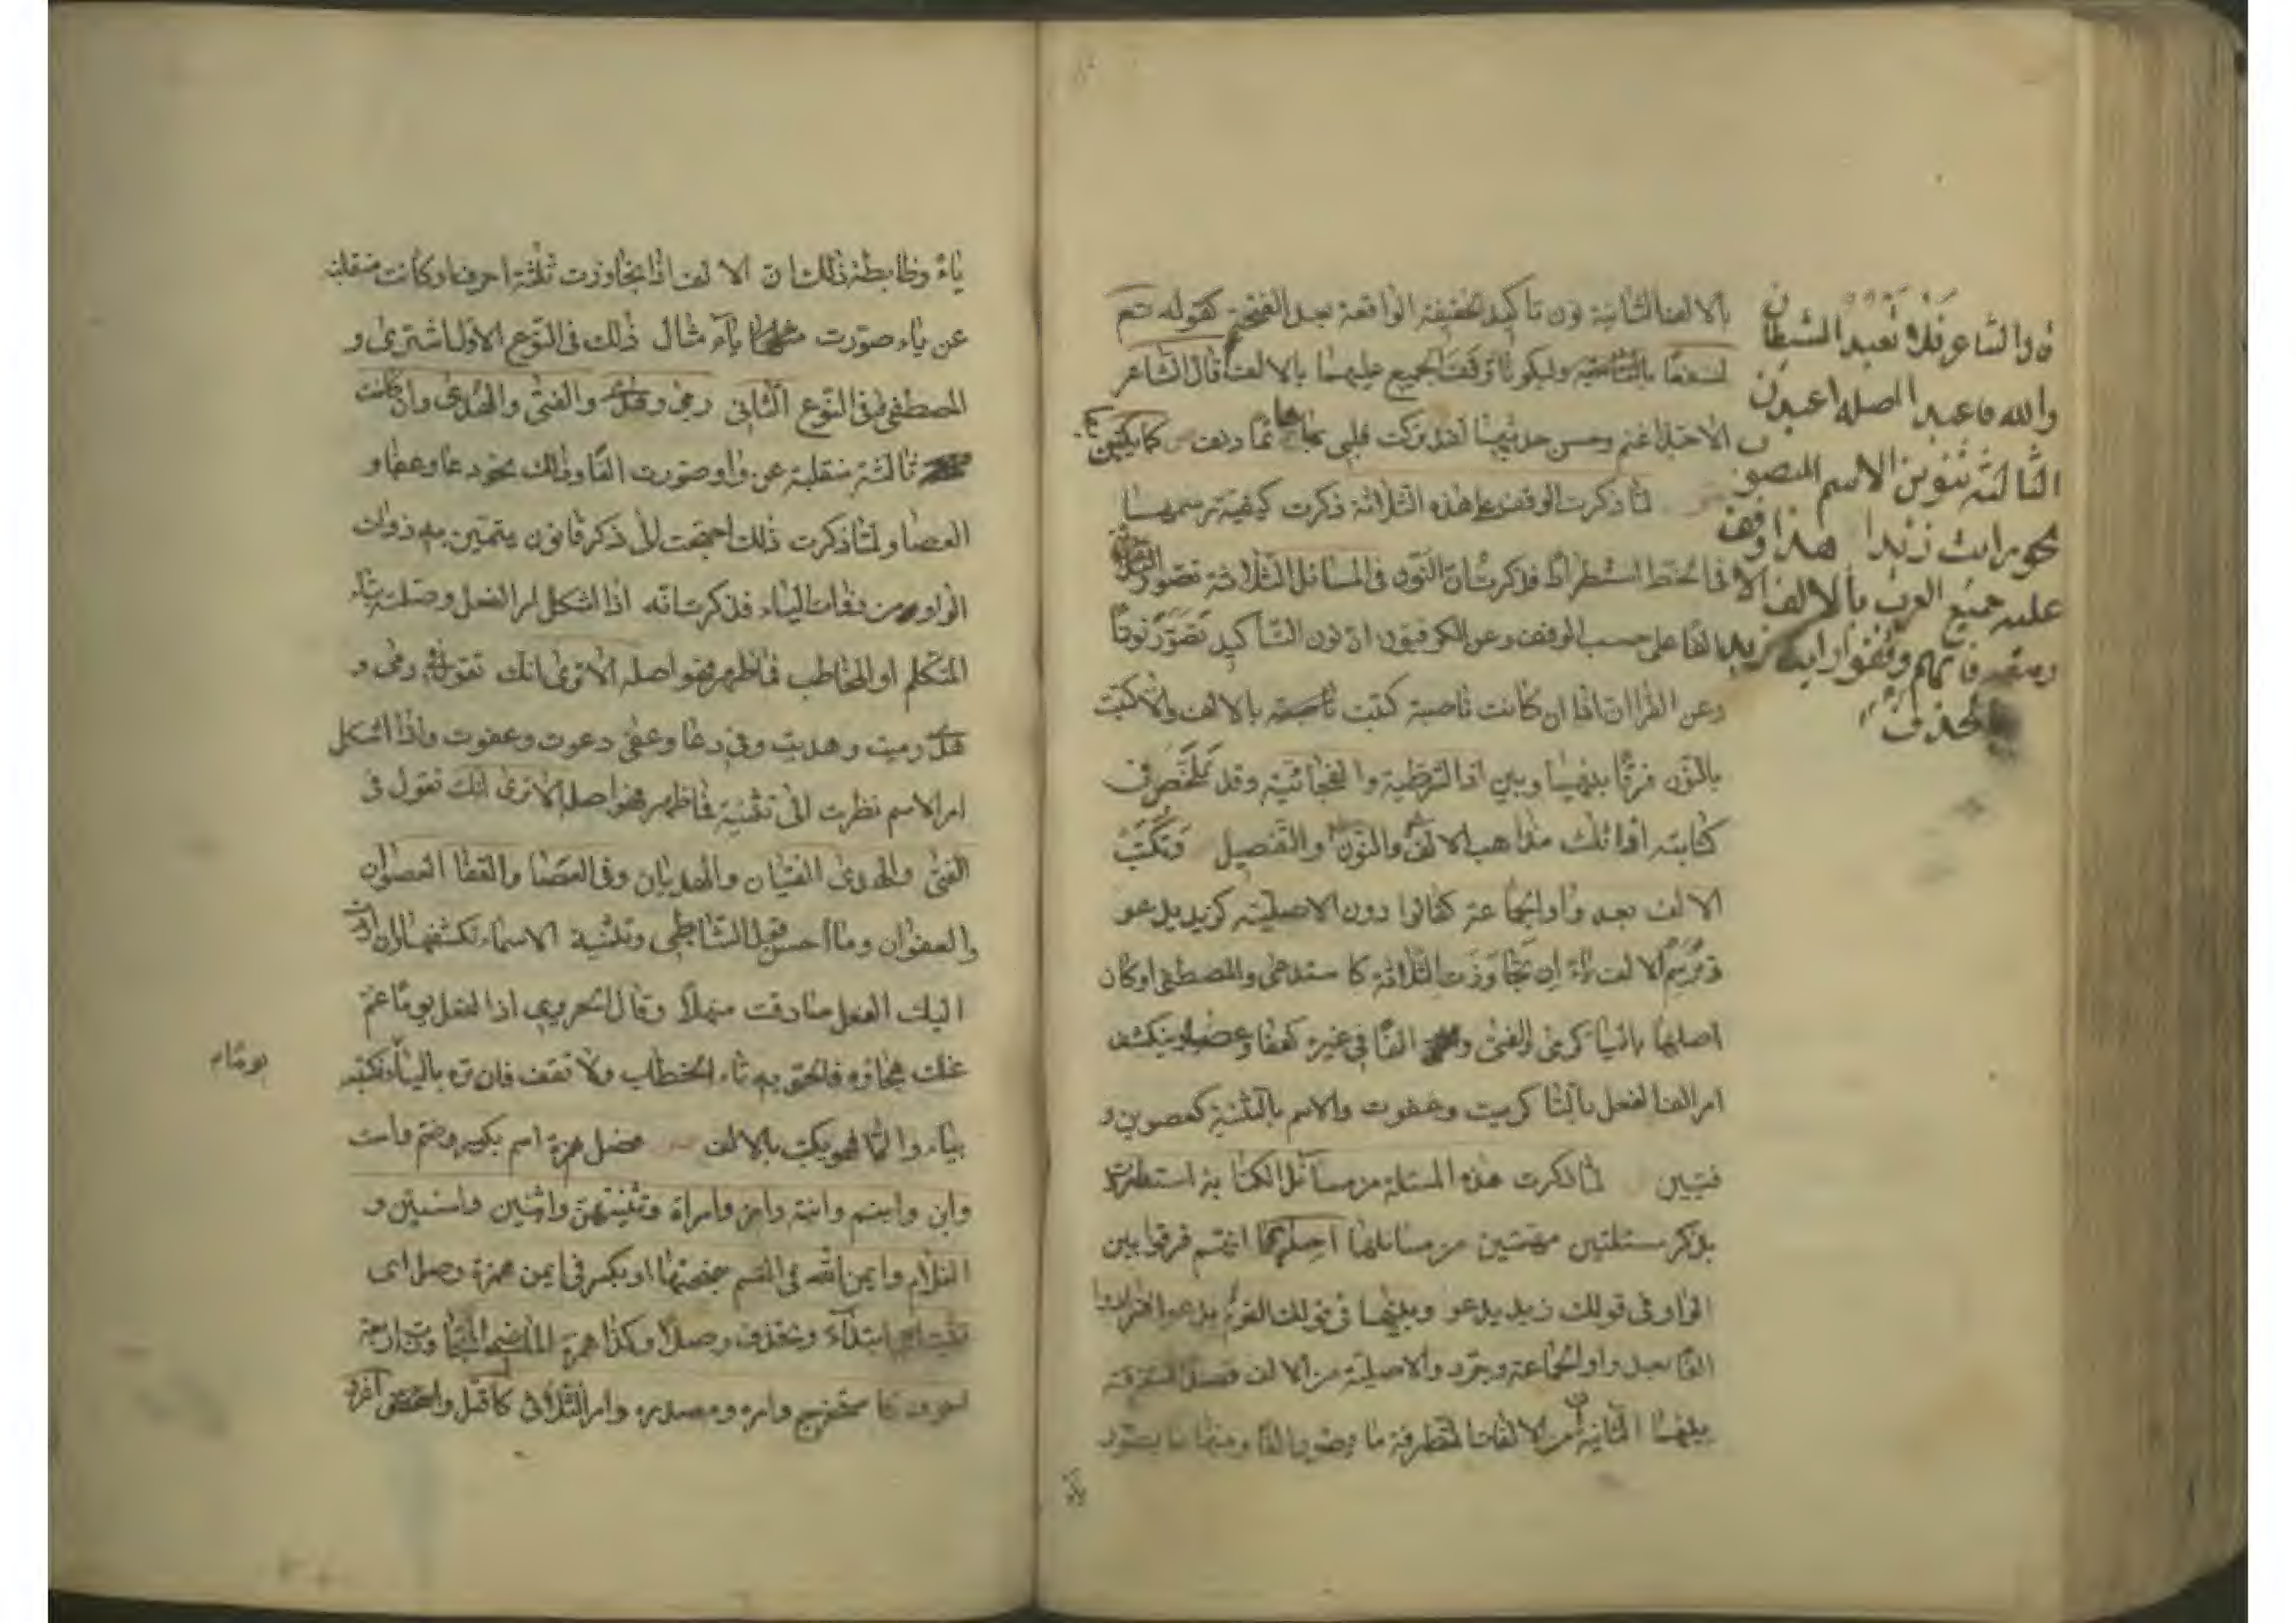 بالالف الثانية نون تاكيد الخفيفة الواقعة بعد الفتحة كقوله تعم
لنسفعًا بالناصية وليكونًا وقف الجميع عليهما بالالف قال الشاعر
الا حبذا غنم وحسن حديثها لقد تركت قلبي بها هائمًا دنف كما يكتبن
لمّا ذكرت الوقف على هذه الثلاثة ذكرت كيفية رسمها
في الخط استطرادًا فذكرت ان النون في المسائل الثلاثة تصوّر
الفًا على حسب الوقف وعن الكوفيون ان نون التأكيد تصوّر نونًا
وعن الفرا ان اذا ان كانت ناصبة كتبت بالالف والا كتبت
بالنون فرقًا بينها وبين اذا الشرطية والفجائية وقد تلخّص في
كتابة اذا ثلث مذاهب الالف والنون والتفصيل وتكتب
الالف بعد واو الجماعة كقالوا دون الاصلية كزيد يدعو
وترسم الالف ياء ان تجاوزت الثلاثة كاستدعى والمصطفى او كان
اصلها ياليا كرمى والفتى والفًا في غيره كعفا وعصا وينكشف
امر الف الفعل بالتا كرميت وعفوت والاسم بالتثنية كعصوين و
فتيين لما ذكرت هذه المسئلة من مسائل الكتابة استطردت
بذكر مسئلتين مهمتين من مسائلها احدٰيهما انهم فرقوا بين
الواو في قولك زيد يدعو وبينها في قولك القوم يدعوا فزادوا
الفًا بعد واو الجماعة وجرّد والاصلية من الالف قصدًا للتفرقة
بينهما الثانية ان من الالفات المتطرفة ما يصور الفًا ومنها ما يصوّر
ن والشاعر فلا تعبد الشيطان
والله فاعبد اصله اعبدن
الثالثة تنوين الاسم المنصوب
نحو رايت زيدا هذا وقف
عليه جميع العرب بالالف الا
ربيعه فانهم وقفوا رايت زيد
بالحذف
ياءً وضابطة ذلك ان الالف اذا تجاوزت ثلثة احرف او كانت منقلبة
عن ياء صوّرت ياء مثال ذلك في النّوع الاول اشترى و
المصطفى وفي النّوع الثاني رمى وهدى والفتى والهدى وان كانت
ثالثة منقلبة عن واو صورت الفًا وذلك نحو دعا وعفا و
العصا ولمّا ذكرت ذلك احتجت لان ذكر قانون يتميّز به ذوات
الواو من ذوات الياء فذكرت انه اذا اشكل امر الفعل وصلته بتاء
المتكلم او المخاطب فما ظهر فهو اصله الا ترى انك تقول في رمى و
هدى رميت وهديت وفي دعا وعفى دعوت وعفوت واذا اشكل
امر الاسم نظرت الى تثنية فما ظهر فهو اصله الا ترى انك تقول في
الفتى والهدى الفتيان والهديان وفي العصا والقفا العصوان
والعفوان وما احسن قول الشاطبي وتثنية الاسماء تكشفها وان رددت
اليك الفعل صادفت منهلًا وقال الحريري اذا الفعل يومًا غم
عنك هجاؤه فالحق به تاء الخطاب ولا تقف فان تره بالياء فكتبه
بياء والّا فهو يكتب بالالف فصل همزة اسم بكسر وضم واست
وابن وابنم وابنة وامرء وامراة وتثنيتهن واثنين واثنتين و
الغلام وايمن الله في القسم بفتحها او بكسر في ايمن همزة وصل اى
تثبت ابتدآء وتحذف وصلًا وكذا همزة الماضي المتجاوز اربعة
احرف كاستخرج وامره ومصدره وامر الثلاثى كاقتل واغز
يومًا